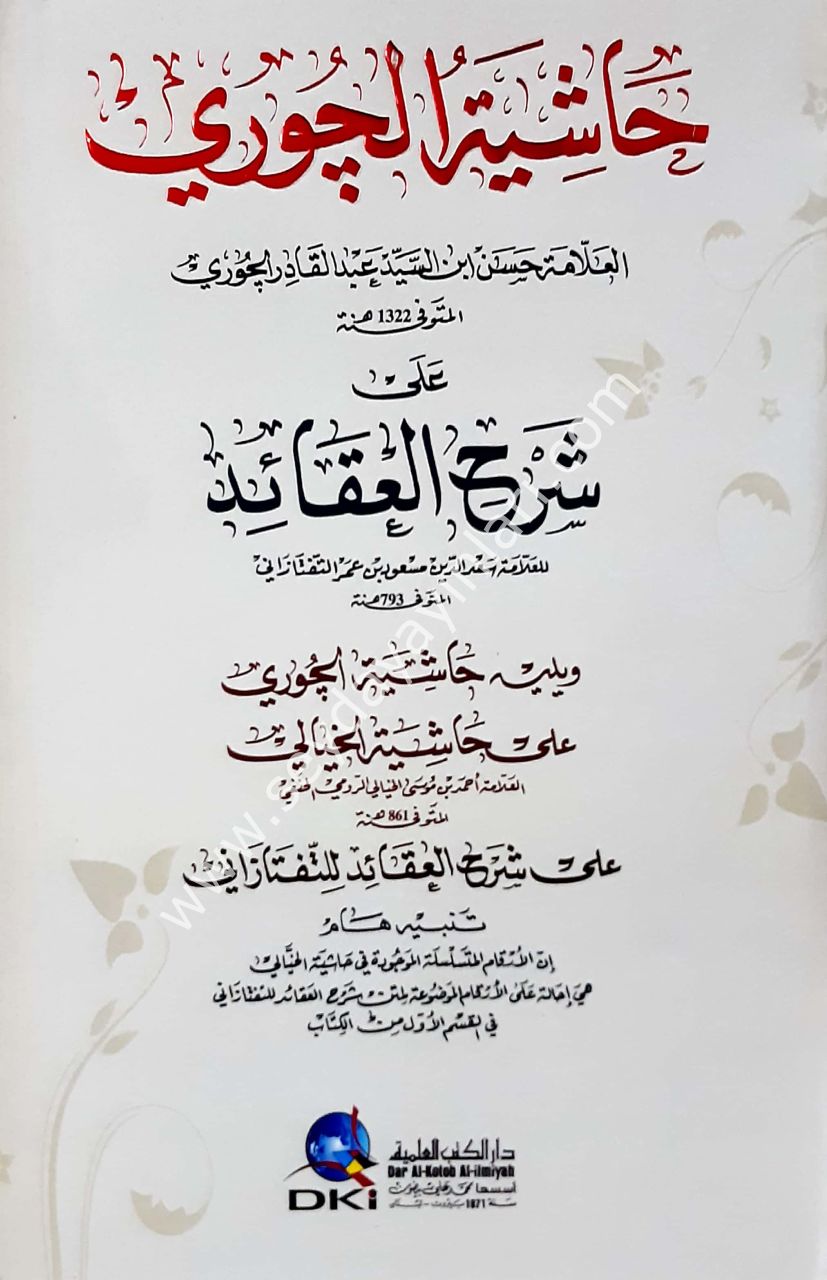 حَاشِيَةُ الچُورِي
العَلّامَة حَسَن ابن السَّيِّد عَبْد القَادِر الچُورِي
المتوفى 1322 هـنة
عَلَى
شَرْحِ العَقَائِد
للعَلّامَة سَعْد الدِّين مسعود بن عمر التفتازاني
المتوفى 793 هـنة
ويليه حَاشِيَة الچُورِي
على حَاشِيَة الخَيَالي
العَلّامَة أحمد بن مُوسَى الخيالي الرومي الحنفي
المتوفى 861 هـنة
على شَرْح العَقَائِد للتّفتَازَاني
تَنبيه هَام
إن الأرقام المتسلسلة الموجودة في حاشية الخيالي
هي إحالة على الأرقام الموضوعة لمتن شرح العقائد للتفتازاني
في القسم الأول من الكتاب
دار الكتب العلمية
Dar Al-Kotob Al-ilmiyah
DKi
أسسها محمد علي بيضون
سنة 1971 بيروت - لبنان
www.seydayayinlari.com